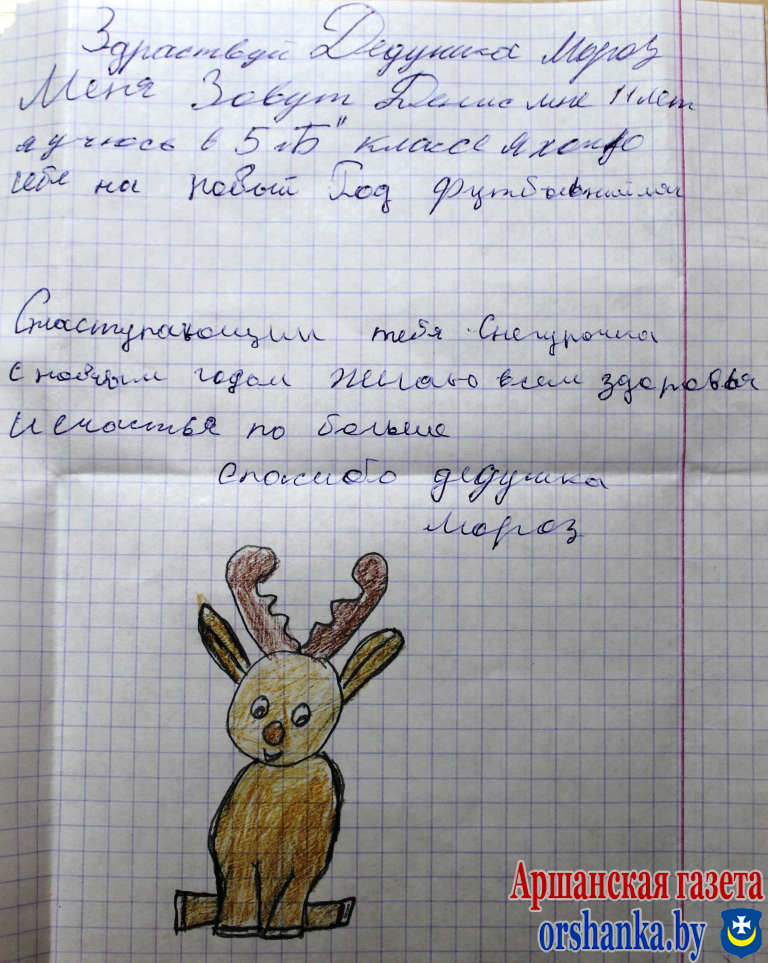 Здраствуй Дедушка Мороз
Меня Зовут Денис мне 11 лет
я учюсь в 5 "Б" классе я хочю
себе на новый Год футбольный мяч
Снаступающим тебя Снегурочка
с новым годом желаю всем здоровья
и счастья по больше
спосибо дедушка
мороз
Аршанская газета
orshanka.by